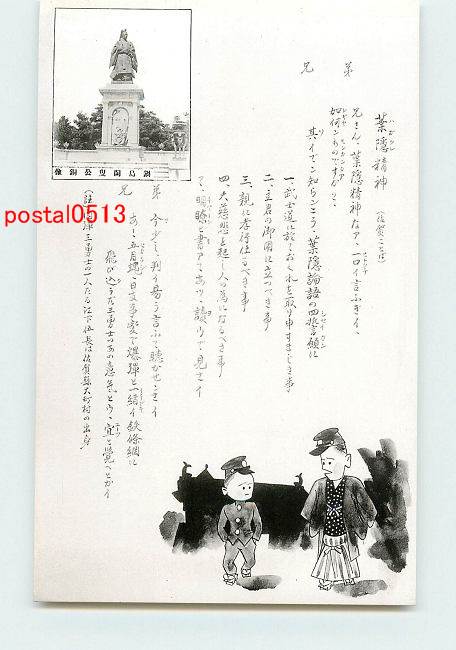 葉隠精神
（佐賀ことば）
弟
兄さん、葉隠精神なア、一口イ言ふぎイ、
如何いふものですか？
兄
其イでン知らンこう、葉隠論語の四誓願に
一、武士道に於ておくれを取り申すまじき事
二、主君の御用に立つべき事
三、親に孝行仕るべき事
四、大慈悲を起し人の為になるべき事
て、明瞭と書アてあつ、讀ウで見さイ
弟 今少と、判イ易う言ふて聴かせンさイ
兄 あゝ、五月端日支事変で爆弾と一緒イ鉄條網に
飛び込うだ三勇士のあの意気とウ、宜と覚べとかイ
（註 肉弾三勇士の一人たる江下伍長は佐賀縣大町村の出身）
鍋島閑叟公銅像
postal0513